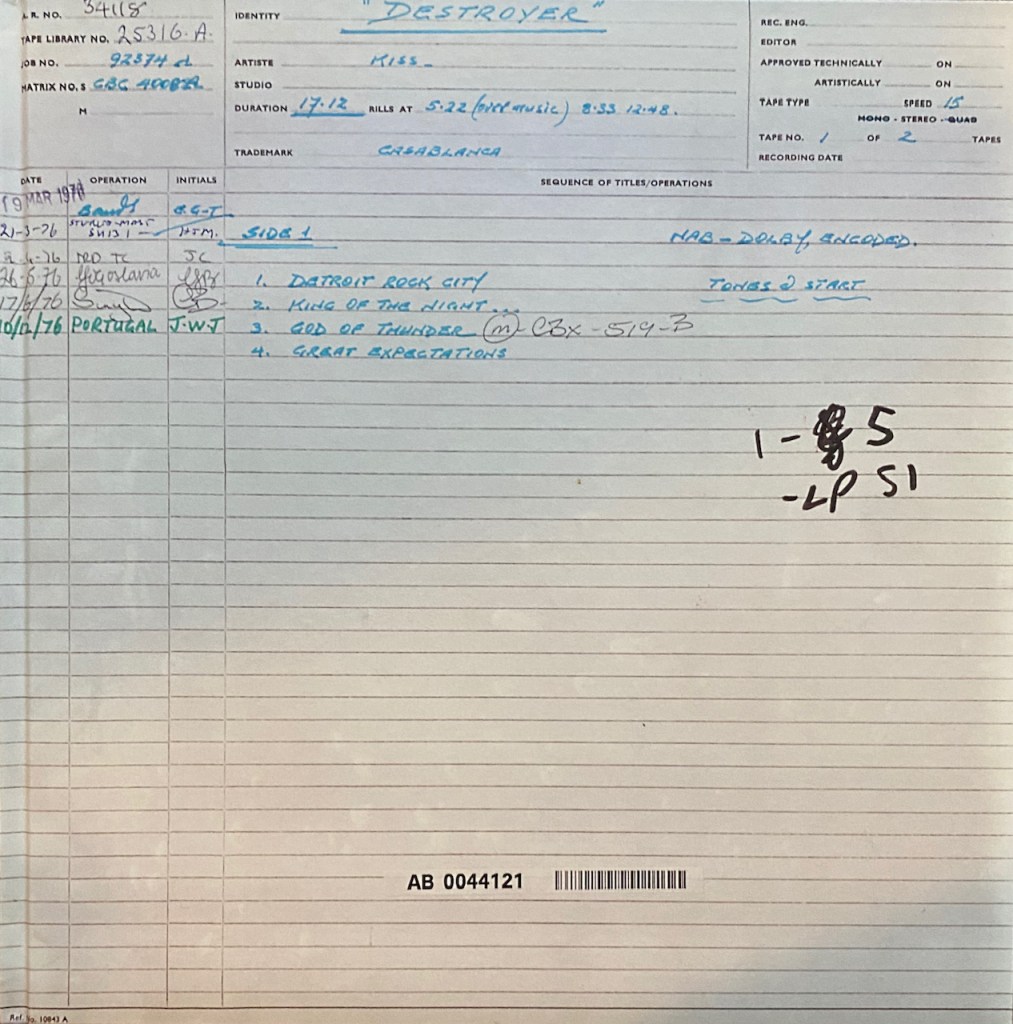 L.R. NO. 34118
TAPE LIBRARY NO. 25316·A.
JOB NO. 92374
MATRIX NO. S CBC
M
IDENTITY "DESTROYER"
ARTISTE KISS
STUDIO
DURATION 17·12 RILLS AT 5·22 (over music) 8·33 12·48.
TRADEMARK CASABLANCA
REC. ENG.
EDITOR
APPROVED TECHNICALLY ON
ARTISTICALLY ON
TAPE TYPE SPEED 15
MONO - STEREO - QUAD
TAPE NO. 1 OF 2 TAPES
RECORDING DATE
DATE OPERATION INITIALS SEQUENCE OF TITLES/OPERATIONS
19 MAR 1976
21-3-76 H.T.M. SIDE 1 NAB - DOLBY, ENCODED.
-76 TC JC
26·5·76 Yogoslavia 1. DETROIT ROCK CITY TONES @ START
17/6/76 2. KING OF THE NIGHT...
10/12/76 PORTUGAL J.W.J 3. GOD OF THUNDER (m) - CBX - 519-B
4. GREAT EXPECTATIONS
1 - 5
- LP S1
AB 0044121
Ref. No. 10843 A